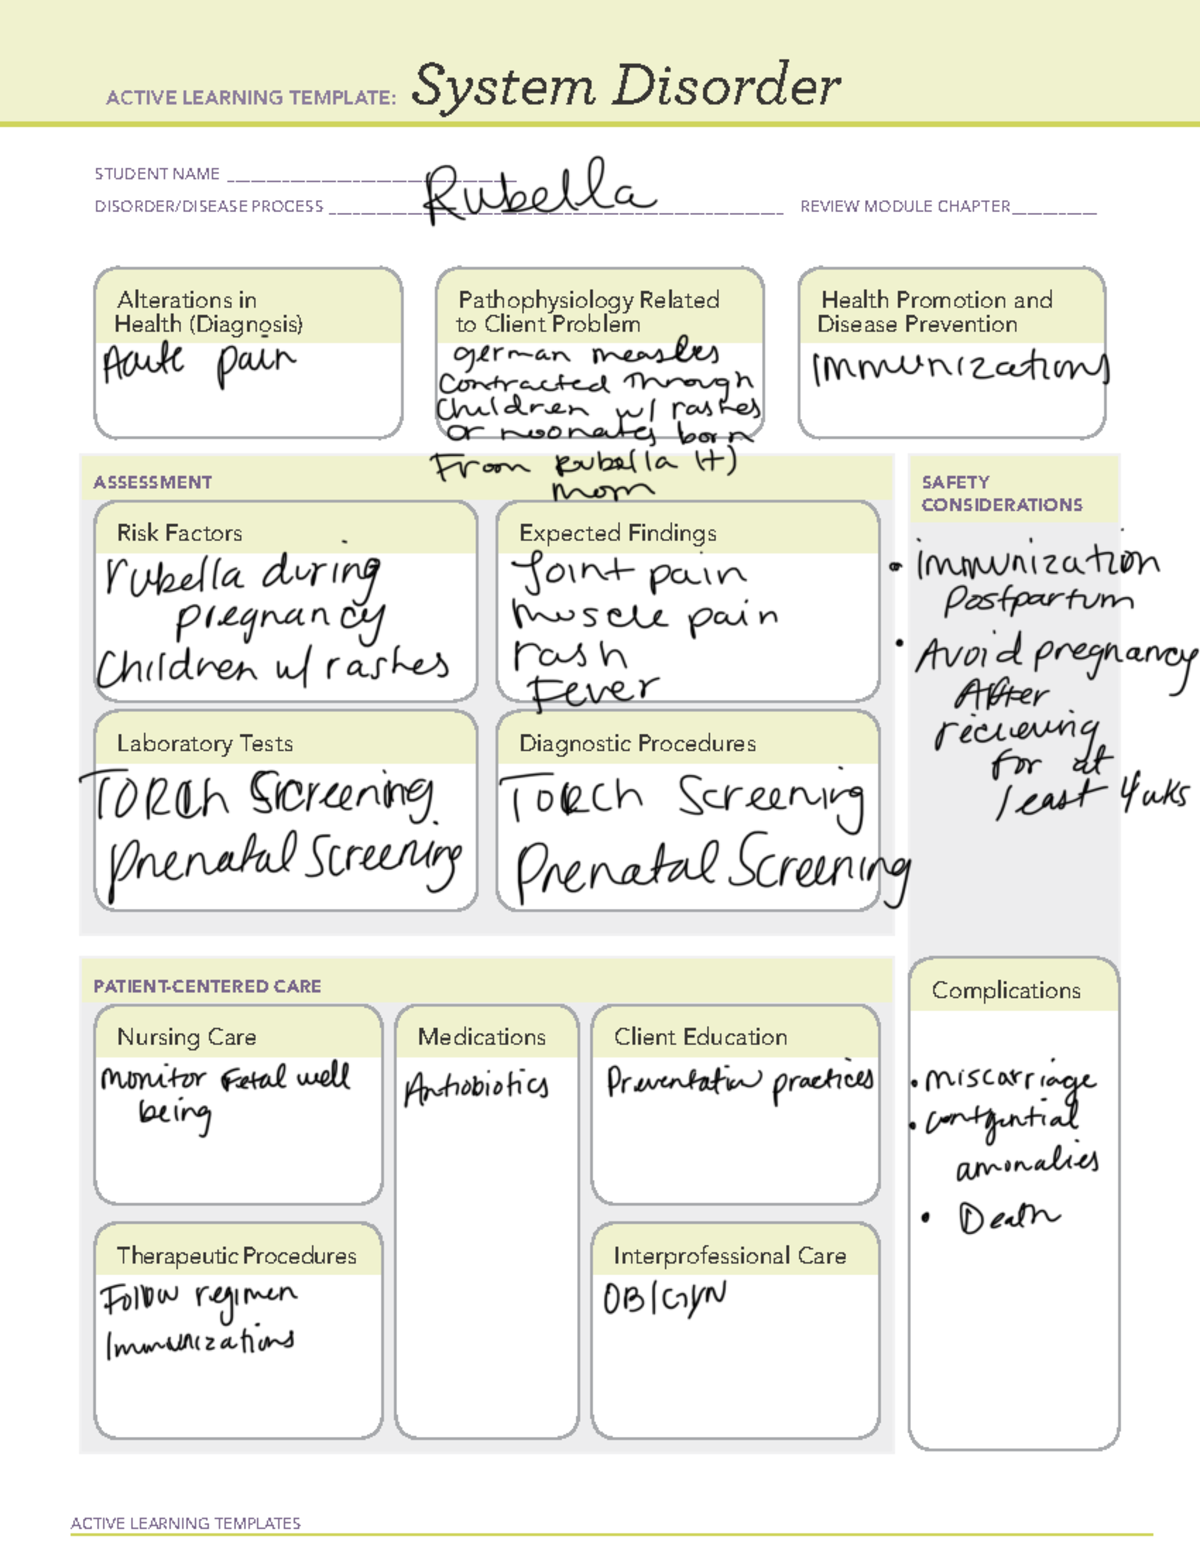 ACTIVE LEARNING TEMPLATE: System Disorder
STUDENT NAME
Rubella
DISORDER/DISEASE PROCESS
REVIEW MODULE CHAPTER
Alterations in
Health (Diagnosis)
Acute pain
Pathophysiology Related
to Client Problem
german measles
contracted through
children w/ rashes
or neonates born
From Rubella (+)
mom
Health Promotion and
Disease Prevention
Immunizations
ASSESSMENT
Risk Factors
rubella during
pregnancy
Children w/ rashes
Expected Findings
Joint pain
muscle pain
rash
Fever
Laboratory Tests
TORCh Screening
prenatal Screening
Diagnostic Procedures
TORCh Screening
Prenatal Screening
SAFETY
CONSIDERATIONS
• immunization
Postpartum
• Avoid pregnancy
After
recieving
for at
least 4 wks
PATIENT-CENTERED CARE
Nursing Care
monitor Fetal well
being
Medications
Antiobiotics
Client Education
Preventation practices
Complications
• miscarriage
amonalies
• Death
Therapeutic Procedures
Follow regimen
Immunizations
Interprofessional Care
OB/GYN
ACTIVE LEARNING TEMPLATES